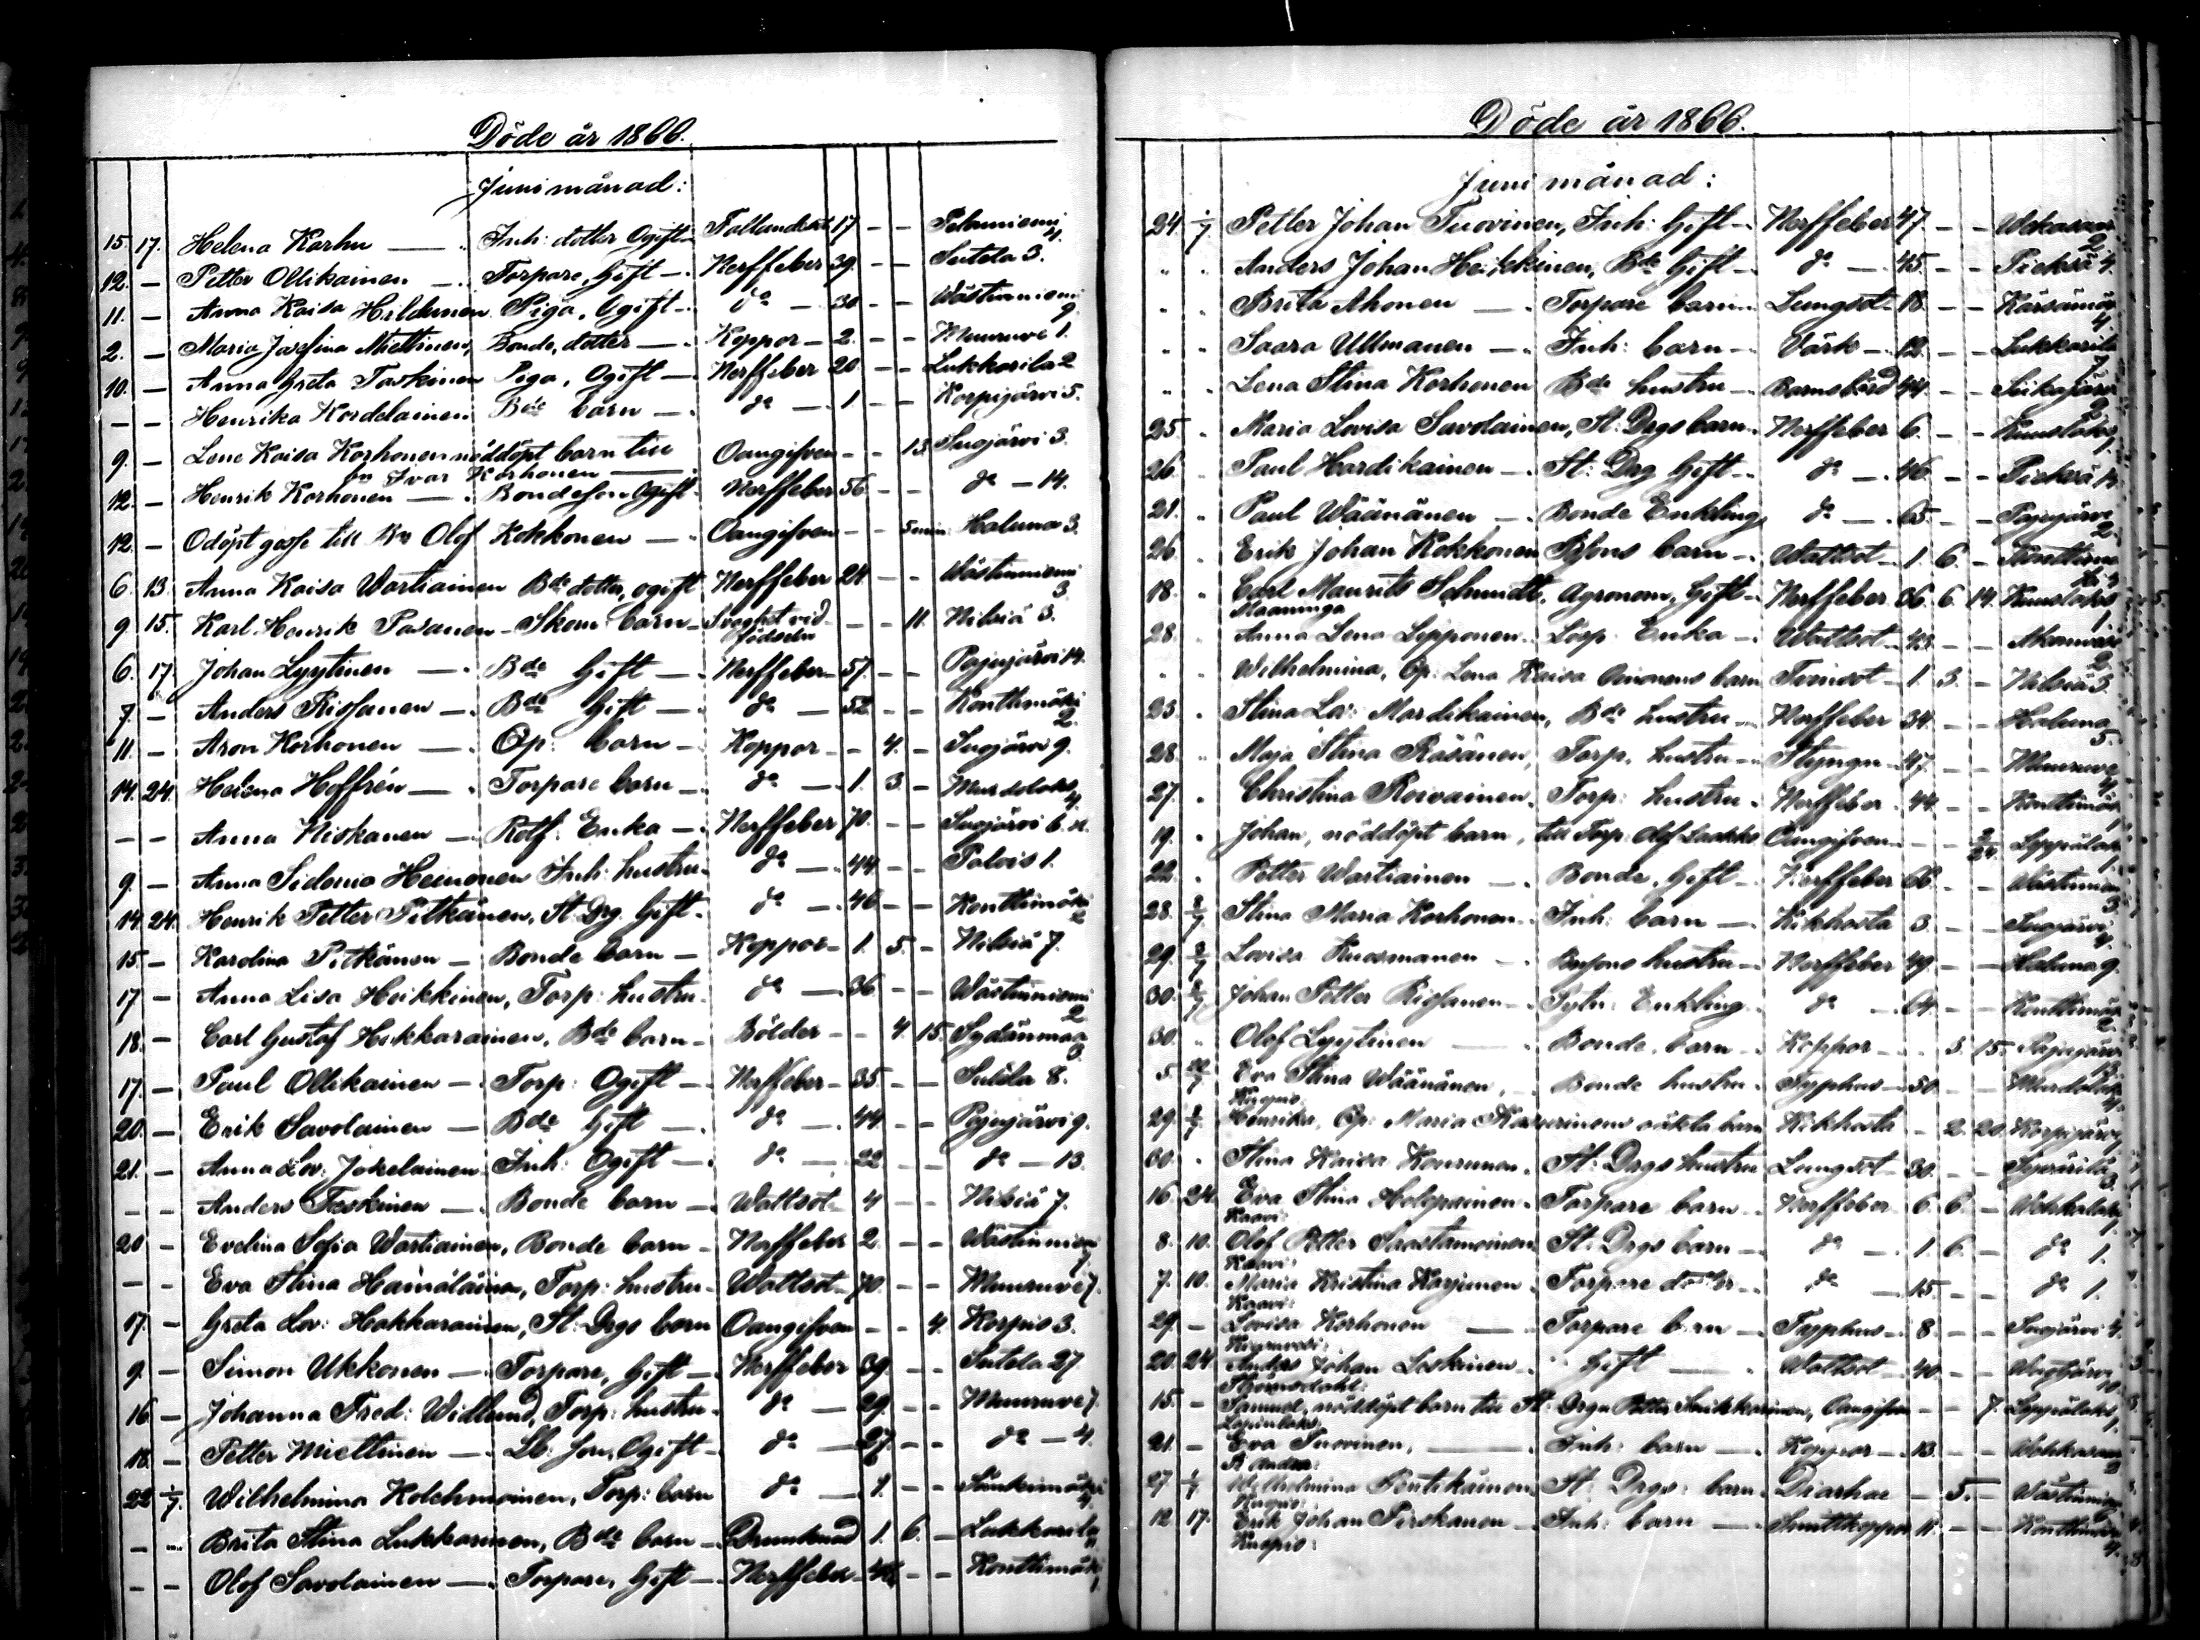 Döde år 1866.
Juni månad:
15. 17. Helena Karhu — Inh: dotter Ogift — Fallandesot 17 - - Pelonniemi 4.
12. — Petter Ollikainen — Torpare, Gift — Nerffeber 39. - - Sutela 3.
11. — Anna Kaisa Hildunen Piga, Ogift — do — 30 - - Västinniemi 9.
2. — Maria Josefina Miettinen, Bonde, dotter — Koppor — 2. - - Muuruve 1.
10. — Anna Greta Taskinen Piga, Ogift — Nerffeber 20 - - Lukkarila 2
— — Henrika Kordelainen Bde barn — do — 1 - - Korpijärvi 5.
9. — Lena Kaisa Korhonen nöddöpt barn till Oangifven - - 13. Suojärvi 3.
Ivar Korhonen —
12. — Henrik Korhonen — Bondeson Ogift Nerffeber 56. - - do — 14.
12. — Odöpt gosse till Bn Olof Kokkonen — Oangifven - - 5 min Haluna 3.
6. 13. Anna Kaisa Wartiainen Bde dotter, ogift Nerffeber 24 - - Västinniemi 3
9 15. Karl Henrik Pasanen — Skom: barn — Svaghet vid födseln - - 11. Nilsiä 3.
6. 17. Johan Lyytinen — Bde Gift — Nerffeber 57. - - Pajujärvi 14.
7 — Anders Rissanen — Bde Gift — do — 52. - - Konttimäki 2.
11. — Aron Korhonen — Op: barn — Koppor — - 4. - Suojärvi 9.
14. 24. Helena Hoffrén — Torpare barn — do — 1. 3. - Murdolaks 4.
— — Anna Niskanen — Rotf: Enka — Nerffeber 70. - - Suojärvi 6.
9. — Anna Sidonia Heinonen Inh: hustru — do — 44 - - Palois 1.
14. 24. Henrik Petter Pitkänen, St. Drg. Gift — do — 46 - - Konttimäki 2
15. — Karolina Pitkänen — Bonde barn — Koppor — 1. 5. - Nilsiä 7.
17 — Anna Lisa Heikkinen, Torp: hustru — do — 36 - - Västinniemi 2
18. — Carl Gustaf Hukkarainen, Bde barn — Bölder — - 4. 15. Sydänmaa 3
17. — Paul Ollikainen — Torp: Ogift — Nerffeber — 35 - - Sutela 8.
20. — Erik Savolainen — Bde Gift — do — 44 - - Pajujärvi 9.
21. — Anna Lov: Jokelainen Inh: Ogift — do — 22 - - do — 13.
— — Anders Taskinen — Bonde barn — Wattsot — 4 - - Nilsiä 7.
20 — Evelina Sofia Wartiainen, Bonde barn — Nerffeber 2. - - Västinniemi 7.
— — Eva Stina Hämäläinen, Torp: hustru — Wattsot — 70. - - Muuruve 7.
17. — Greta Lov: Hakkarainen, St: Drgs barn Oangifven - - 4. Korpis 3.
9. — Simon Ukkonen — Torpare, Gift — Nerffeber 39. - - Sutela 27.
16. — Johanna Fred: Widlund, Torp: hustru — do — 29 - - Muuruve 7.
18. — Petter Miettinen — Lb: son, Ogift — do — 27. - - do — 4.
22 1/7. Wilhelmina Kolehmainen, Torp: barn do — 1. - - Sänkimäki 4.
— — Brita Stina Lukkarinen, Bde barn — Drunknad 1. 6. - Lukkarila
— — Olof Savolainen — Torpare, Gift — Nerffeber — - - Konttimäki 1
Döde år 1866.
Juni månad:
24. 1/7. Petter Johan Tuovinen, Inh: Gift — Nerffeber 47. - - 2.
" " Anders Johan Heikkinen, Bde Gift — do — 45. - - Pieksä 4.
" " Brita Ahonen — Torpare barn — Lungsot — 18. - - Käräsmäki 4.
" " Saara Ullmanen — Inh: barn — Värk — 12. - - Lukkarila 7.
" " Lena Stina Korhonen Bde hustru — Barnsbörd 44. - - Siikajärvi 2.
25. " Maria Lovisa Savolainen, St: Drgs barn — Nerffeber 6. - -
26. " Paul Hardikainen — St: Drg Gift — do — 46. - - Pieksä 14
21. " Paul Wäänänen — Bonde Enkling, do — 65. - - Pajujärvi 2.
26. " Erik Johan Kokkonen Bssons barn — Wattsot — 1. 6. -
18. " Carl Maurits Schmidt, Agronom, Gift — Nerffeber 36. 6. 14.
Maaninga
28. " Anna Lena Lipponen — Lösp: Enka — Wattsot — 43. - - 2.
" " Wilhelmina, Op: Lena Kaisa Ainonens barn Tvinsot — 1. 3. - Nilsiä 3.
25. " Stina Lov: Mardikainen, Bde hustru — Nerffeber 34. - - Haluna 5.
28. " Maja Stina Räsänen, Torp. hustru — Styngn — 47. - - Muuruve 4.
27. " Christina Roivainen, Torp: hustru — Nerffeber 44. - - Konttimäki 1
19. " Johan, nöddöpt barn, till Torp: Olof Laakko Oangifven — - - 2/24 Leppälaks 1.
22. " Petter Wartiainen — Bonde, Gift — Nerffeber 66. - - 3.
28. 8/7 Stina Maria Korhonen — Inh: barn — Kikhosta 3. - - Suojärvi 4.
29. 8/7 Lovisa Kuosmanen — Bssons hustru — Nerffeber 49. - - Haluna 9.
30. 8/7 Johan Petter Rissanen — Enkling do — 64. - - Konttimäki 2.
30. " Olof Lyytinen — Bonde barn — Koppor — - 3. 15. Pajujärvi
5. Eva Stina Wäänänen, — Bonde hustru — Typhus — 50. - - Murdolaks 4.
Kuopio:
29. Henrika, Op: Maria oäkta barn Kikhosta - 2. 20. Korpijärvi
30. " Stina Kaisa Kouvunen, St: Drgs hustru Lungsot — 30. - - 3.
16. 24. Eva Stina Holopainen — Torpare barn — Nerffeber 6. 6. - 1.
Kaavi:
8. 10. Olof Petter Saastamoinen St: Drgs barn — do — 1. 6. - do 1.
Kaavi:
7. 10. Maria Kristina Karjunen — Torpare dotter — do — 15. - - do 1.
Kaavi:
29. — Lovisa Korhonen — Torpare barn — Typhus — 8. - - Suojärvi 4.
20. 24. Anders Johan Leskinen — Gift — Wattsot — 40. - -
15. — Samuel, nöddöpt barn till St: Drgn Petter Oangifven — - 7. Leppälaks 1.
21. — Eva Tuovinen, — Inh: barn — Koppor — 13. - -
27 1/7 Wilhelmina Pentikäinen St: Drgs: barn Diarhae — 5. — Västinniemi
Kuopio:
12 17. Erik Johan Pirskanen — Inh: barn — Smittkoppor 11. - - Konttimäki 4.
Kuopio: